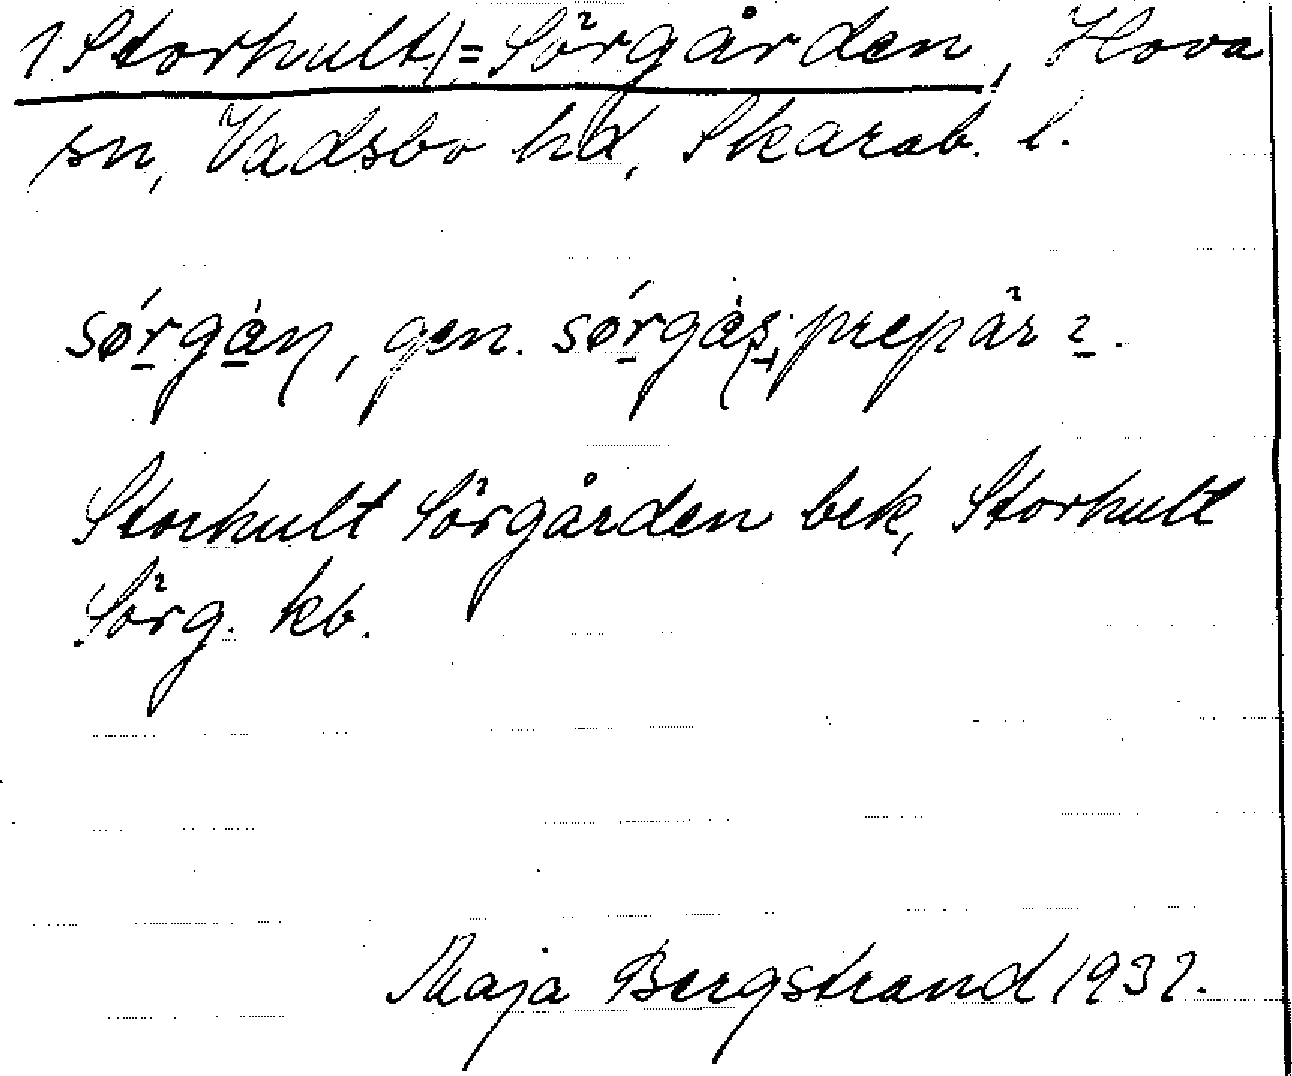 (Storhult)=Sörgården, Hova
sn, Vadsbo hd, Skarab. l.
sørgán, gen. sørgás; prep. år 2.
Storhult Sörgården bek, Storhult
Sörg. kb.
Maja Bergstrand 1932.